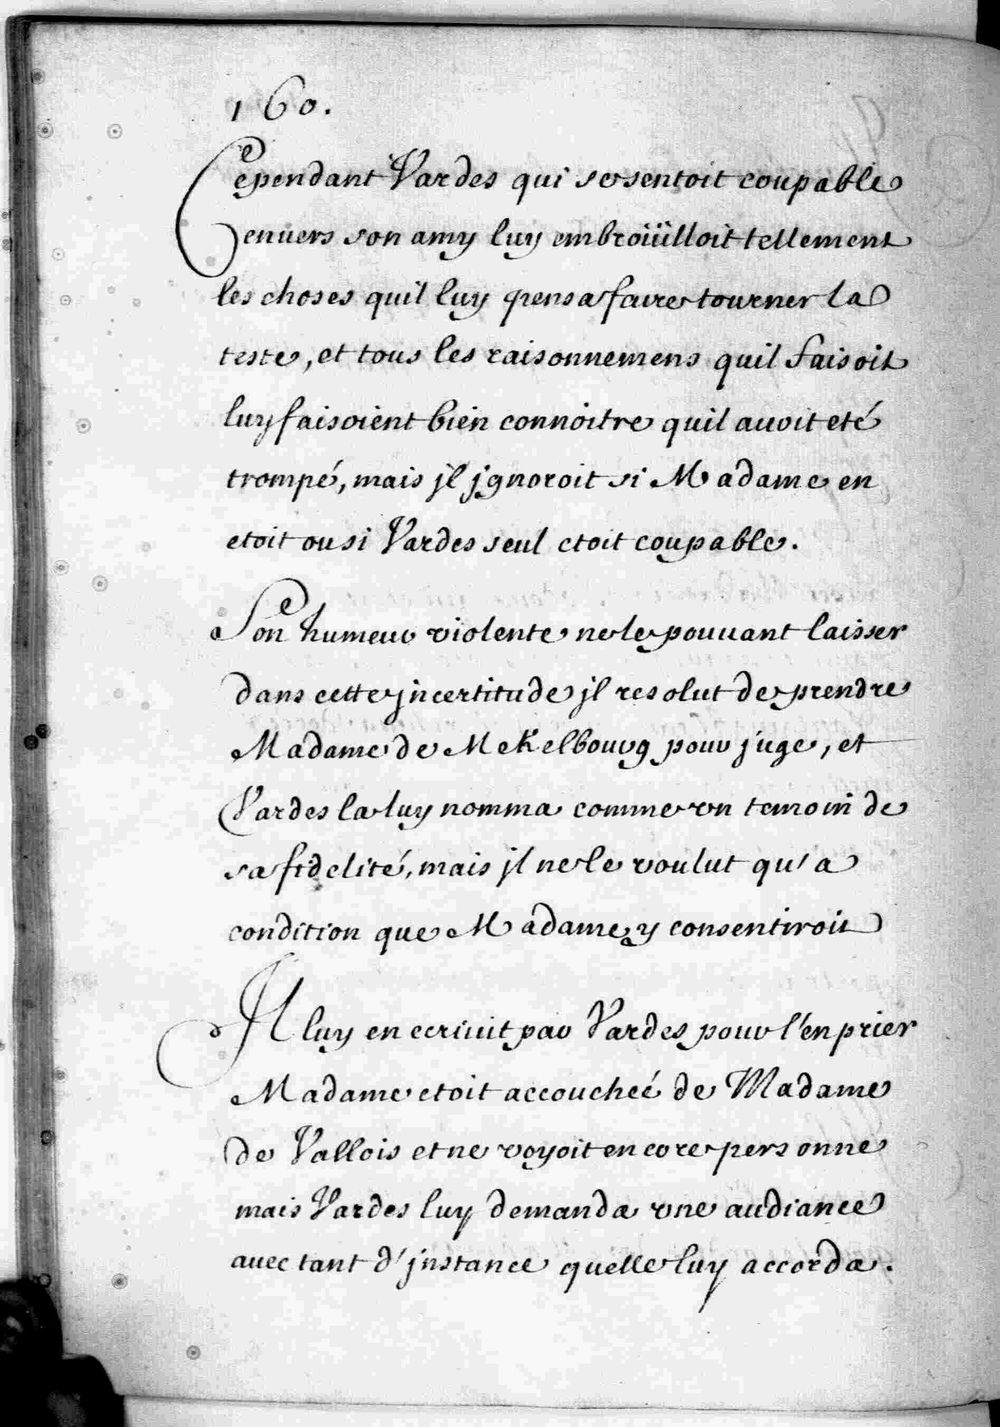 160.
Cependant Vardes qui se sentoit coupable
envers son amy luy embroüilloit tellement
les choses quil luy pensa faire tourner la
teste, et tous les raisonnemens quil faisoit
luy faisoient bien connoitre quil avoit eté
trompé, mais jl jgnoroit si Madame en
etoit ou si Vardes seul etoit coupable.
Son humeur violente ne le pouvant laisser
dans cette jncertitude jl resolut de prendre
Madame de Mekelbourg pour juge, et
Vardes la luy nomma comme un temoin de
sa fidelité, mais jl ne le voulut qu'a
condition que Madame y consentiroit
Jl luy en ecrivit par Vardes pour l'en prier
Madame etoit accoucheé de Madame
de Vallois et ne voyoit encore personne
mais Vardes luy demanda une audiance
avec tant d'jnstance quelle luy accorda.